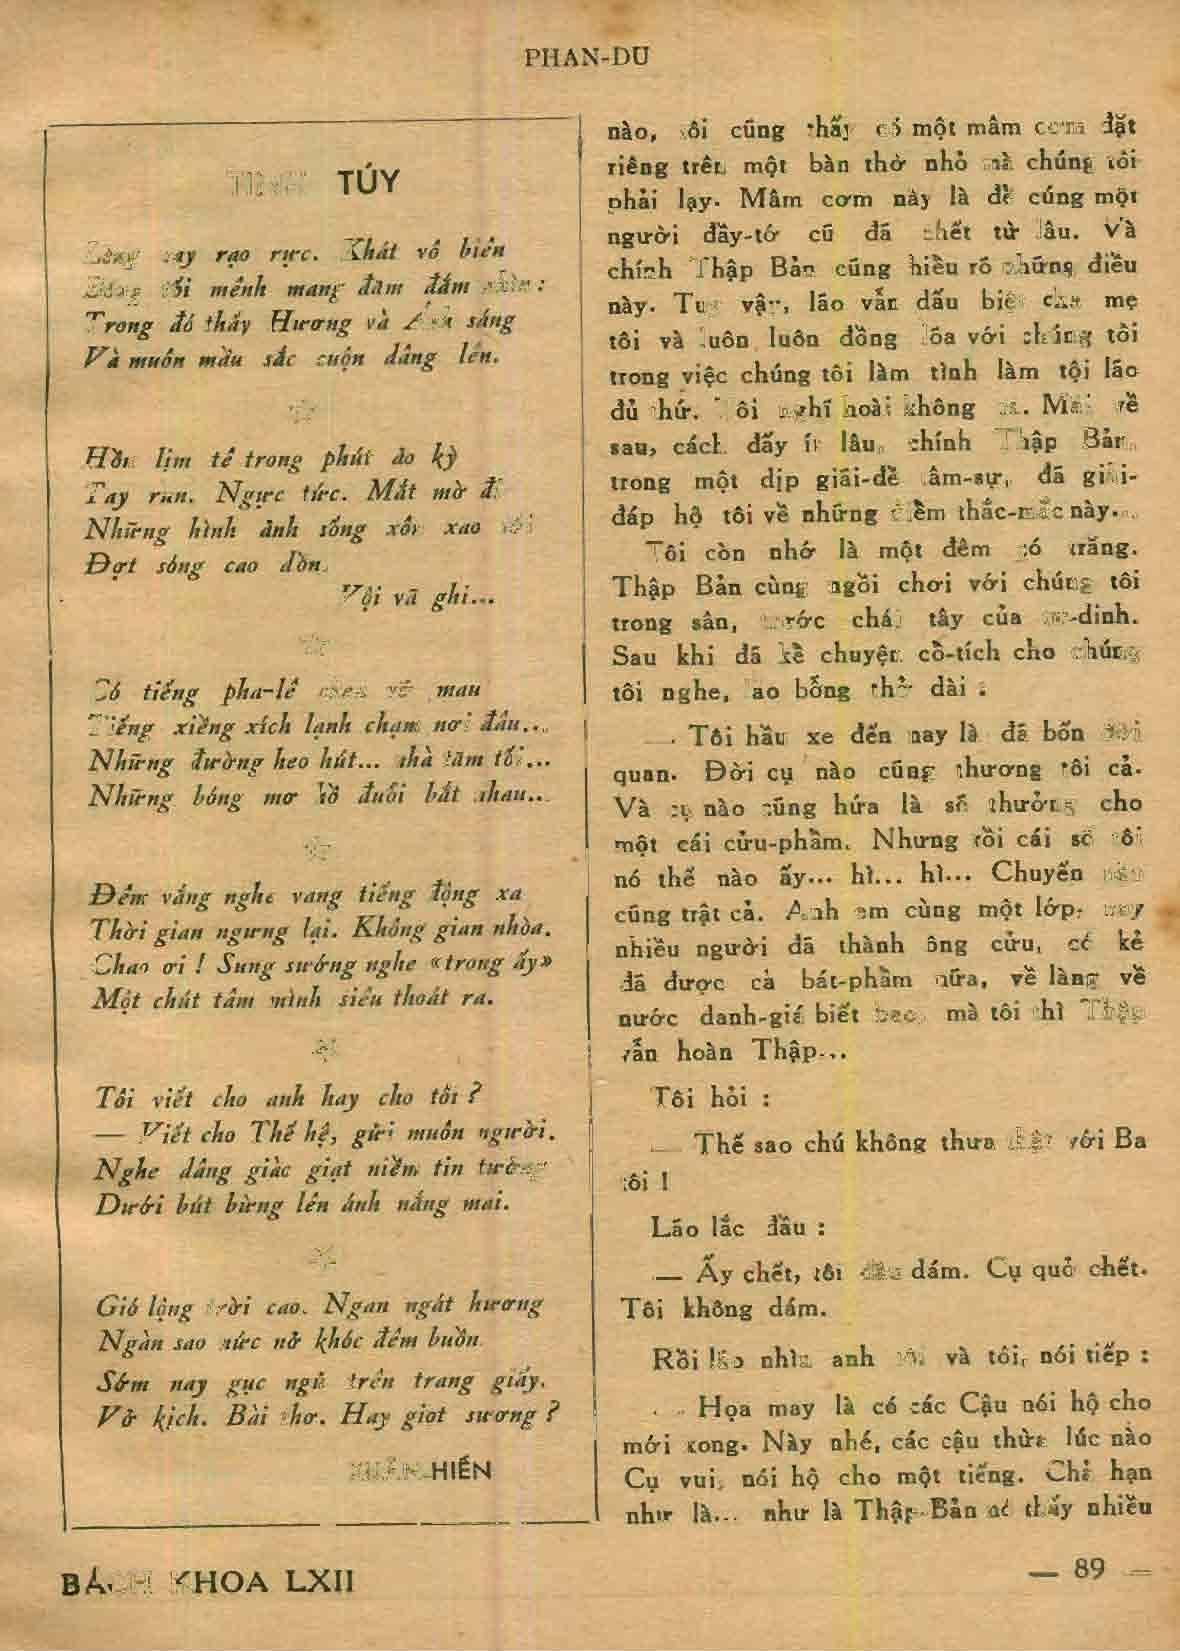 PHAN-DU
TÚY
say rạo rực. Khát vô biên
tôi mênh mang đăm đắm nhìn :
Trong đó thấy Hương và Ánh sáng
Và muôn mầu sắc cuộn dâng lên.
Hồn lịm tê trong phút ảo kỳ
Tay run. Ngực tức. Mắt mờ đi
Những hình ảnh sống xôn xao tới
Đợt sóng cao dồn.
Vội vã ghi...
Có tiếng pha-lê vỡ mau
Tiếng xiềng xích lạnh chạm nơi đâu...
Những đường heo hút... nhà tăm tối...
Những bóng mơ hồ đuổi bắt nhau...
Đêm vắng nghe vang tiếng động xa
Thời gian ngưng lại. Không gian nhòa.
Chao ơi ! Sung sướng nghe «trong ấy»
Một chút tâm mình siêu thoát ra.
Tôi viết cho anh hay cho tôi ?
— Viết cho Thế hệ, gửi muôn người.
Nghe dâng giác giạt niềm tin tưởng
Dưới bút bừng lên ánh nắng mai.
Gió lộng trời cao. Ngan ngát hương
Ngàn sao nức nở khóc đêm buồn
Sớm nay gục ngủ trên trang giấy.
Vở kịch. Bài thơ. Hay giọt sương ?
XUÂN HIẾN
nào, tôi cũng thấy có một mâm cơm đặt
riêng trên một bàn thờ nhỏ mà chúng tôi
phải lạy. Mâm cơm này là để cúng một
người đầy-tớ cũ đã chết từ lâu. Và
chính Thập Bản cũng hiểu rõ những điều
này. Tuy vậy, lão vẫn dấu biệt cha mẹ
tôi và luôn luôn đồng lõa với chúng tôi
trong việc chúng tôi làm tình làm tội lão
đủ thứ. Tôi nghĩ hoài không ra. Mãi về
sau, cách đấy ít lâu, chính Thập Bản,
trong một dịp giãi-đề tâm-sự, đã giải-
đáp hộ tôi về những điểm thắc-mắc này...
Tôi còn nhớ là một đêm có trăng.
Thập Bản cùng ngồi chơi với chúng tôi
trong sân, trước chái tây của tư-dinh.
Sau khi đã kể chuyện cổ-tích cho chúng
tôi nghe, lão bỗng thở dài :
— Tôi hầu xe đến nay là đã bốn đời
quan. Đời cụ nào cũng thương tôi cả.
Và cụ nào cũng hứa là sẽ thưởng cho
một cái cửu-phẩm. Nhưng rồi cái số tôi
nó thế nào ấy... hì... hì... Chuyến nào
cũng trật cả. Anh em cùng một lớp, nay
nhiều người đã thành ông cửu, có kẻ
đã được cả bát-phẩm nữa, về làng về
nước danh-giá biết bao, mà tôi thì Thập
vẫn hoàn Thập...
Tôi hỏi :
— Thế sao chú không thưa thật với Ba
tôi !
Lão lắc đầu :
— Ấy chết, tôi đâu dám. Cụ quở chết.
Tôi không dám.
Rồi lão nhìn anh tôi và tôi, nói tiếp :
— Họa may là có các Cậu nói hộ cho
mới xong. Này nhé, các cậu thừa lúc nào
Cụ vui, nói hộ cho một tiếng. Chả hạn
như là... như là Thập Bản nó thấy nhiều
BÁCH KHOA LXII
— 89 —